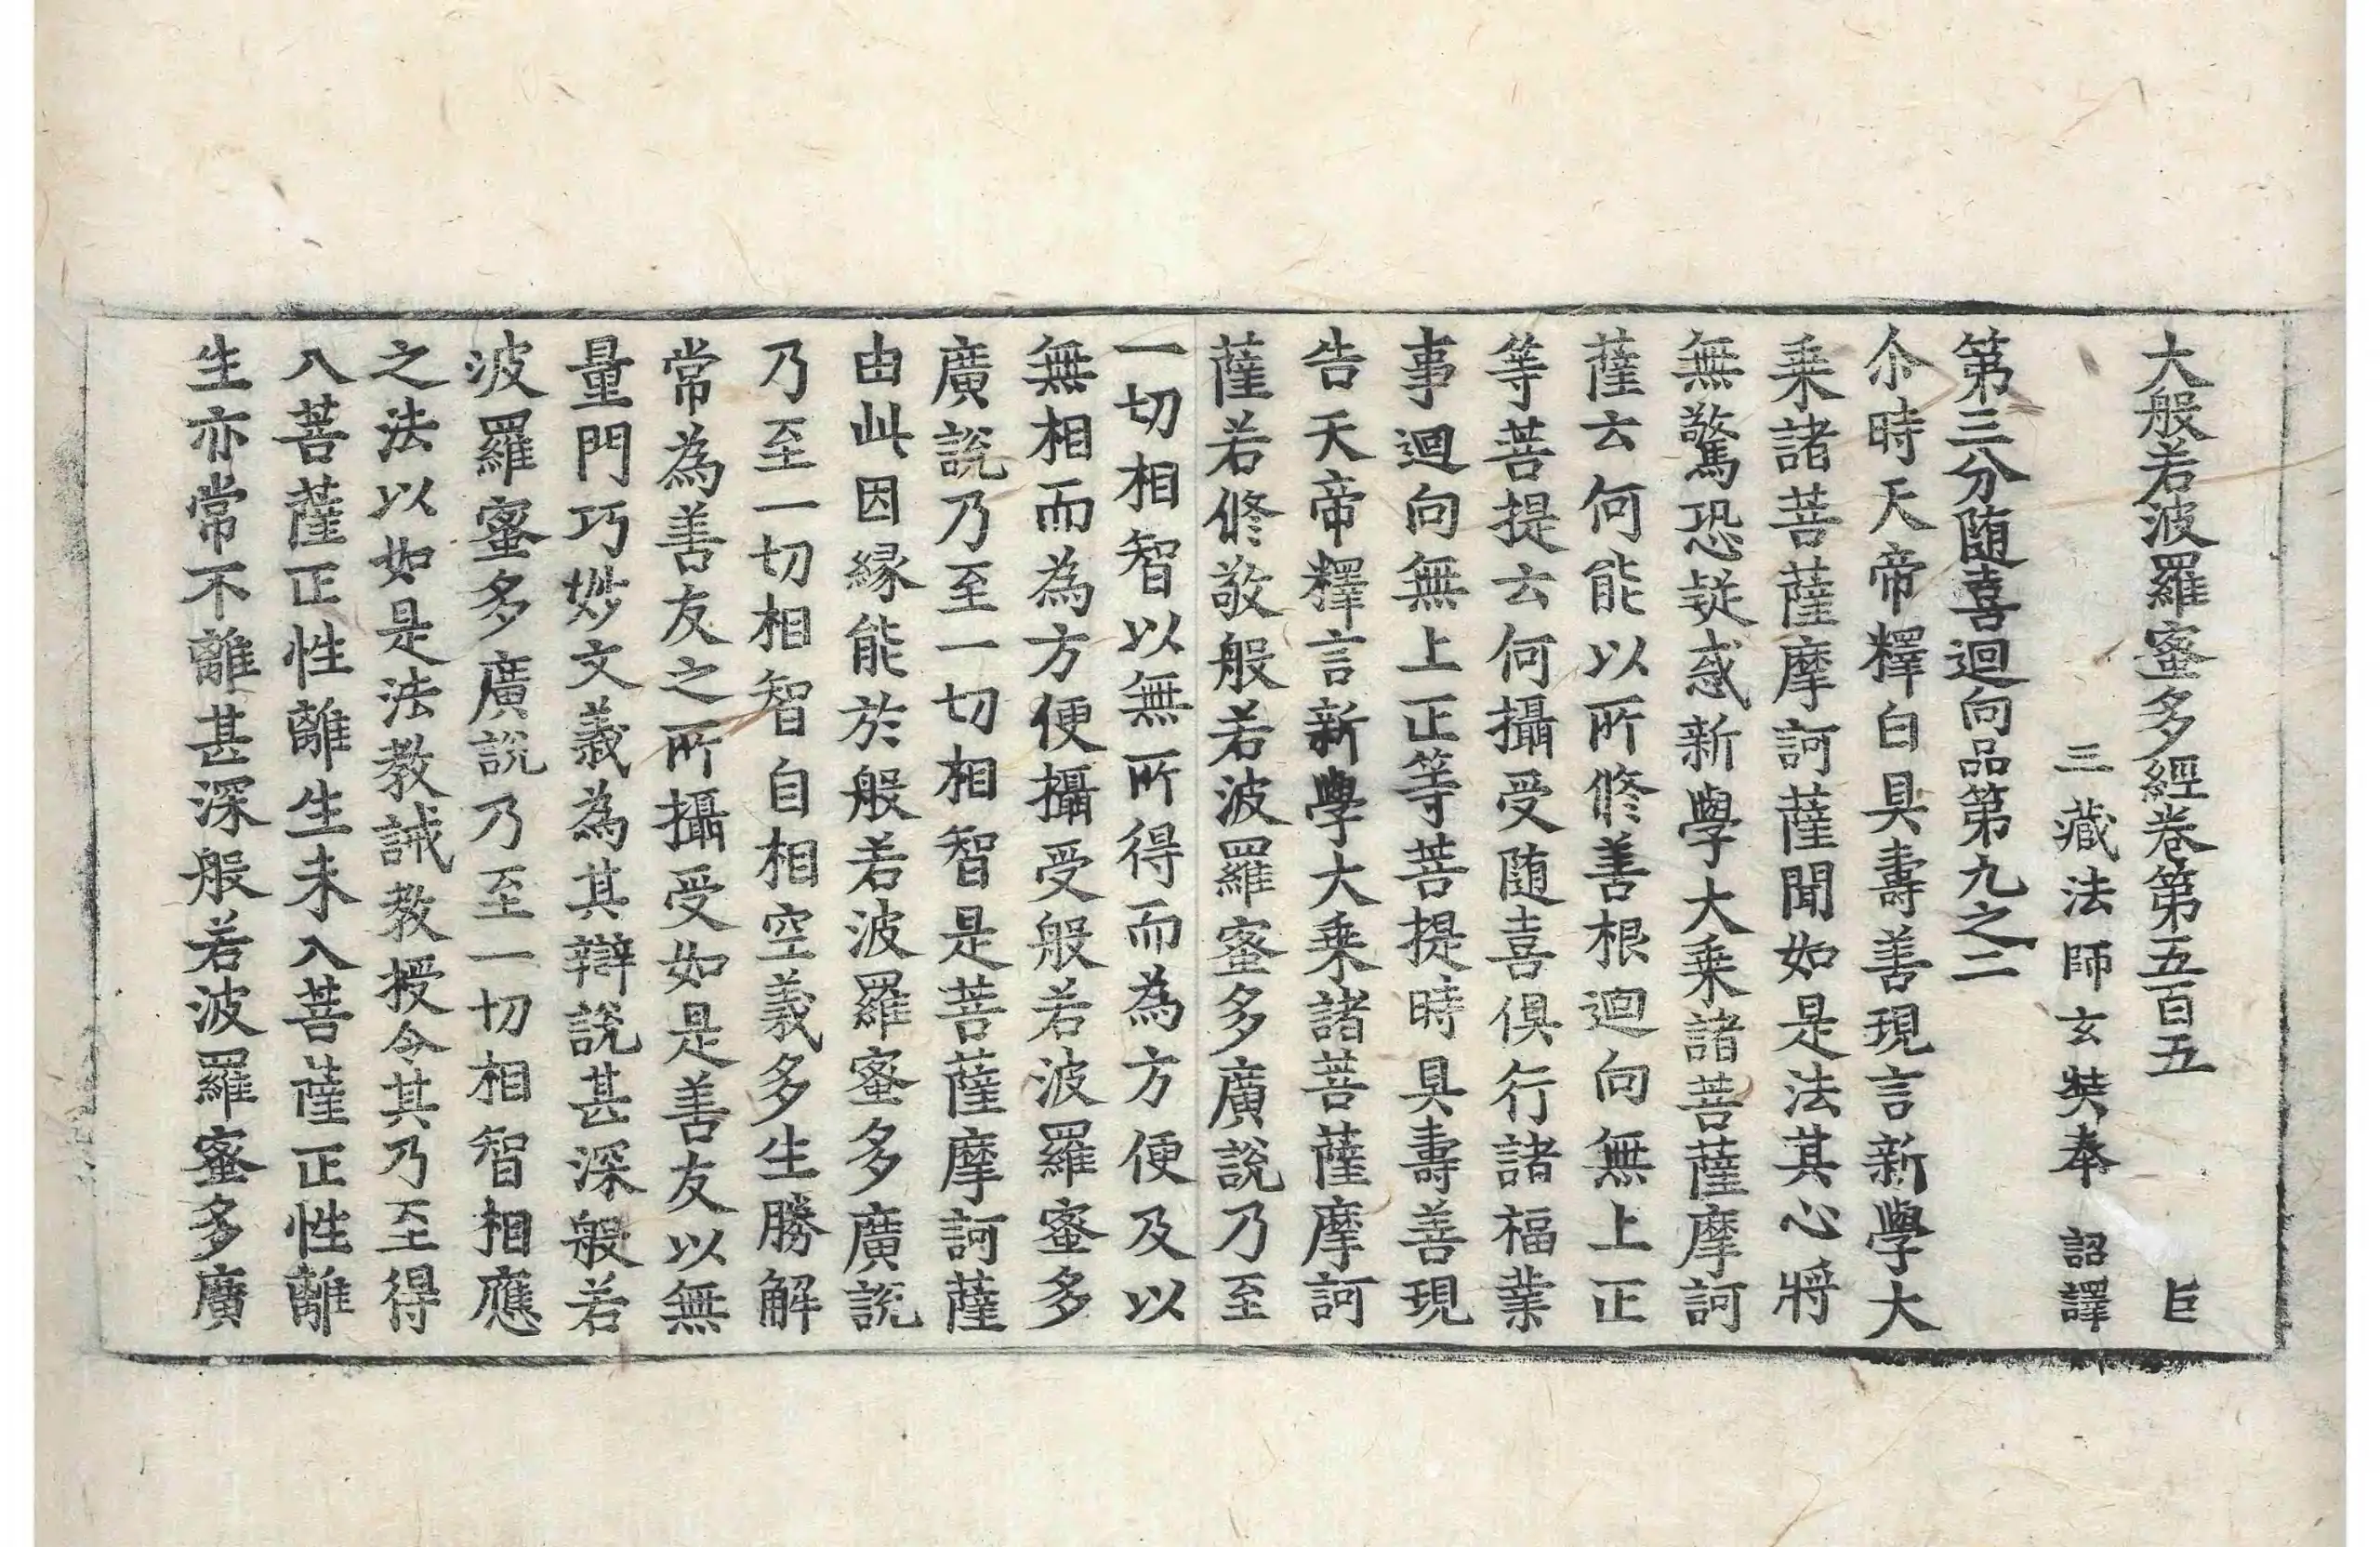 大般若波羅蜜多經卷第五百五 巨
三藏法師玄奘奉 詔譯
第三分随喜迴向品第九之二
尒時天帝釋白具壽善現言新學大
乗諸菩薩摩訶薩聞如是法其心將
無驚恐疑惑新學大乗諸菩薩摩訶
薩云何能以所修善根迴向無上正
等菩提云何攝受随喜俱行諸福業
事迴向無上正等菩提時具壽善現
告天帝釋言新學大乗諸菩薩摩訶
薩若修敬般若波羅蜜多廣說乃至
一切相智以無所得而為方便及以
無相而為方便攝受般若波羅蜜多
廣說乃至一切相智是菩薩摩訶薩
由此因緣能於般若波羅蜜多廣說
乃至一切相智自相空義多生勝解
常為善友之所攝受如是善友以無
量門巧妙文義為其辯說甚深般若
波羅蜜多廣說乃至一切相智相應
之法以如是法教誡教授令其乃至得
入菩薩正性離生未入菩薩正性離
生亦常不離甚深般若波羅蜜多廣